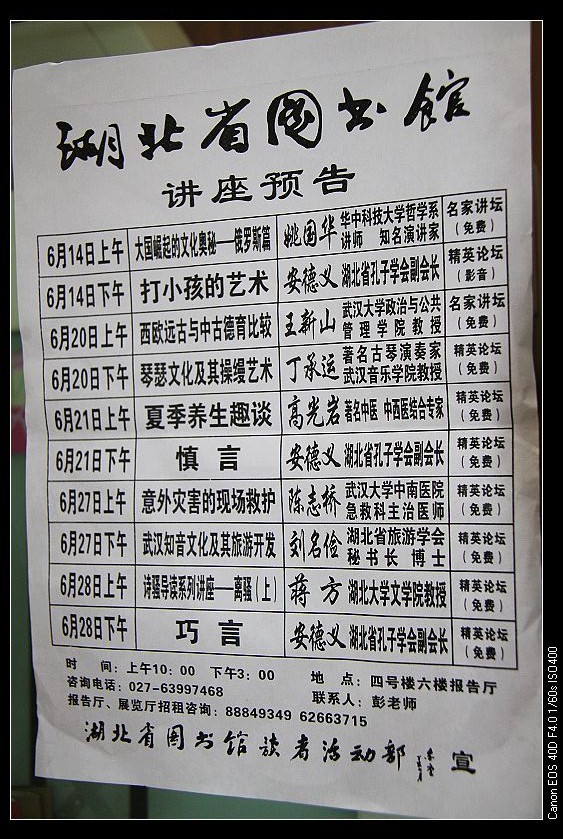 湖北省图书馆
讲座预告
6月14日上午 大国崛起的文化奥秘—俄罗斯篇 姚国华 华中科技大学哲学系讲师 知名演讲家 名家讲坛(免费)
6月14日下午 打小孩的艺术 安德义 湖北省孔子学会副会长 精英论坛(影音)
6月20日上午 西欧远古与中古德育比较 王新山 武汉大学政治与公共管理学院教授 名家讲坛(免费)
6月20日下午 琴瑟文化及其操缦艺术 丁承运 著名古琴演奏家 武汉音乐学院教授 精英论坛(免费)
6月21日上午 夏季养生趣谈 高光岩 著名中医 中西医结合专家 精英论坛(免费)
6月21日下午 慎言 安德义 湖北省孔子学会副会长 精英论坛(免费)
6月27日上午 意外灾害的现场救护 陈志桥 武汉大学中南医院急救科主治医师 精英论坛(免费)
6月27日下午 武汉知音文化及其旅游开发 刘名俭 湖北省旅游学会秘书长 博士 精英论坛(免费)
6月28日上午 诗骚导读系列讲座——离骚(上) 蒋方 湖北大学文学院教授 精英论坛(免费)
6月28日下午 巧言 安德义 湖北省孔子学会副会长 精英论坛(免费)
时 间：上午10：00 下午3：00 地 点：四号楼六楼报告厅
咨询电话：027-63997468 联系人：彭老师
报告厅、展览厅招租咨询：88849349 62663715
湖北省图书馆读者活动部 宣
Canon EOS 40D F4.0 1/60s ISO400